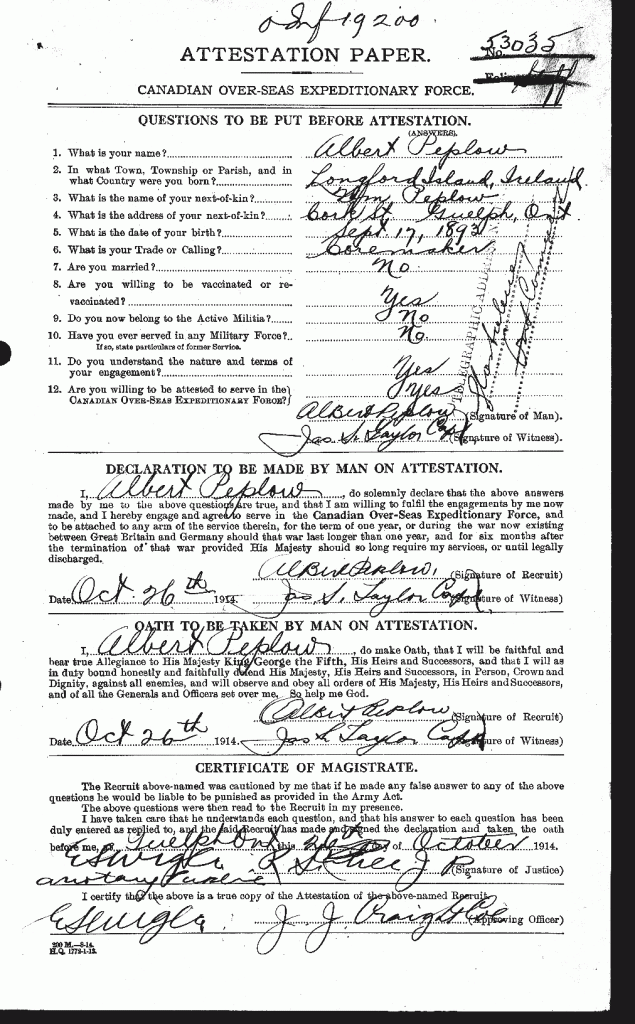 19200
53035
No.
ATTESTATION PAPER.
CANADIAN OVER-SEAS EXPEDITIONARY FORCE.
QUESTIONS TO BE PUT BEFORE ATTESTATION.
(ANSWERS).
1. What is your name? Albert Peplow
2. In what Town, Township or Parish, and in
what Country were you born? Longford Island, Ireland
3. What is the name of your next-of-kin? Wm, Peplow
4. What is the address of your next-of-kin? Cork St. Guelph, Ont
5. What is the date of your birth? Sept 17, 1893
6. What is your Trade or Calling? Coremaker
7. Are you married? No
8. Are you willing to be vaccinated or re-
vaccinated? Yes
9. Do you now belong to the Active Militia? No
10. Have you ever served in any Military Force? No
If so, state particulars of former Service.
11. Do you understand the nature and terms of
your engagement? Yes
12. Are you willing to be attested to serve in the
CANADIAN OVER-SEAS EXPEDITIONARY FORCE? Yes
Albert Peplow (Signature of Man).
Jas S. Taylor Capt (Signature of Witness).
DECLARATION TO BE MADE BY MAN ON ATTESTATION.
I, Albert Peplow, do solemnly declare that the above answers
made by me to the above questions are true, and that I am willing to fulfil the engagements by me now
made, and I hereby engage and agree to serve in the Canadian Over-Seas Expeditionary Force, and
to be attached to any arm of the service therein, for the term of one year, or during the war now existing
between Great Britain and Germany should that war last longer than one year, and for six months after
the termination of that war provided His Majesty should so long require my services, or until legally
discharged.
Albert Peplow, (Signature of Recruit)
Date Oct 26th 1914. Jas S. Taylor Capt (Signature of Witness)
OATH TO BE TAKEN BY MAN ON ATTESTATION.
I, Albert Peplow, do make Oath, that I will be faithful and
bear true Allegiance to His Majesty King George the Fifth, His Heirs and Successors, and that I will as
in duty bound honestly and faithfully defend His Majesty, His Heirs and Successors, in Person, Crown and
Dignity, against all enemies, and will observe and obey all orders of His Majesty, His Heirs and Successors,
and of all the Generals and Officers set over me. So help me God.
Albert Peplow (Signature of Recruit)
Date Oct 26th 1914. Jas S Taylor Capt (Signature of Witness)
CERTIFICATE OF MAGISTRATE.
The Recruit above-named was cautioned by me that if he made any false answer to any of the above
questions he would be liable to be punished as provided in the Army Act.
The above questions were then read to the Recruit in my presence.
I have taken care that he understands each question, and that his answer to each question has been
duly entered as replied to, and the said Recruit has made and signed the declaration and taken the oath
before me, at Guelph Ont this 26th day of October 1914.
J P (Signature of Justice)
a notary Public
I certify that the above is a true copy of the Attestation of the above-named Recruit.
J. J. Craig (Approving Officer)
200 M.—8-14.
H.Q. 1772-1-13.